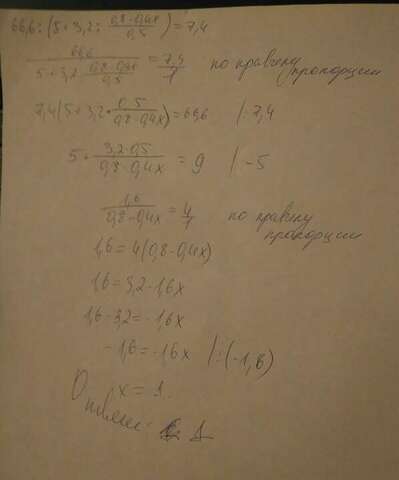 66,6 : (5 + 3,2 : (0,8 - 0,4x)/0,5) = 7,4
66,6/(5 + 3,2 : (0,8 - 0,4x)/0,5) = 7,4/1 по правилу пропорции
7,4(5 + 3,2 · 0,5/(0,8 - 0,4x)) = 66,6 | : 7,4
5 + 3,2 · 0,5/(0,8 - 0,4x) = 9 | -5
1,6/(0,8 - 0,4x) = 4/1 по правилу пропорции
1,6 = 4(0,8 - 0,4x)
1,6 = 3,2 - 1,6x
1,6 - 3,2 = -1,6x
-1,6 = -1,6x | : (-1,6)
x = 1.
Ответ: 1